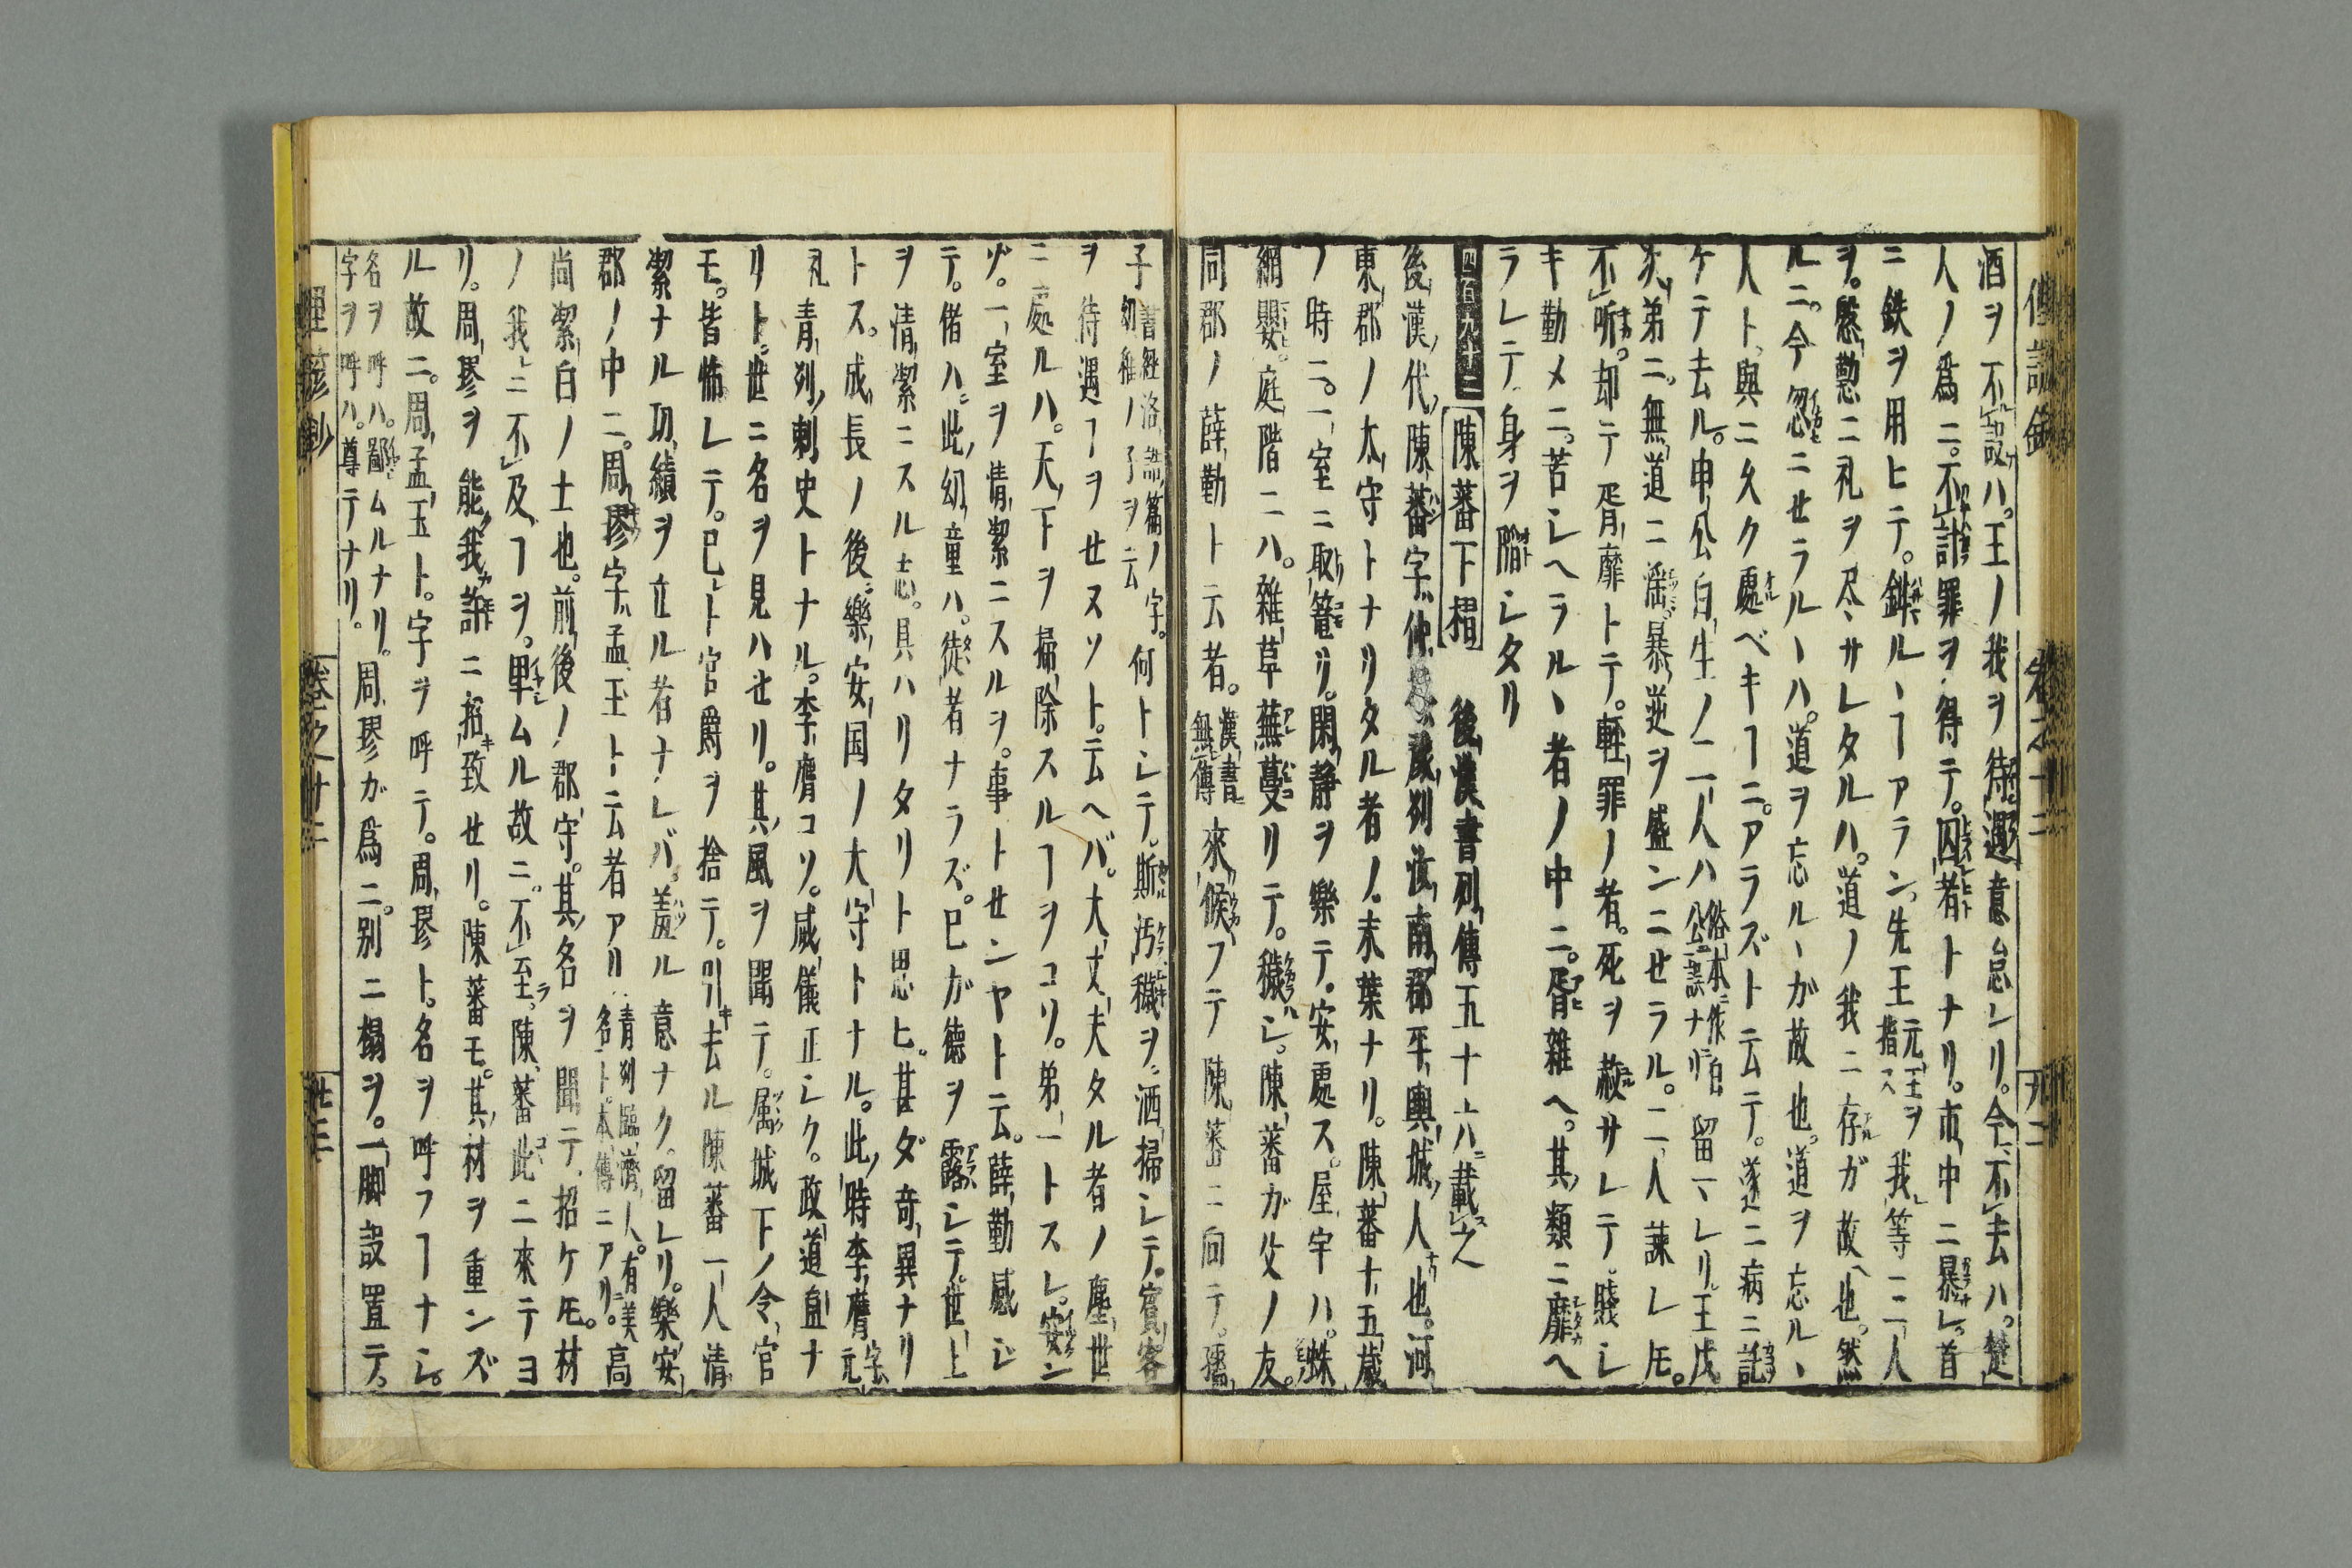 酒ヲ不設ハ。王ノ我ヲ待遇意怠レリ。今不去ハ。楚
人ノ爲ニ。不計罪ヲ得テ。囚者トナリ。市中ニ暴レ。首
ニ鉄ヲ用ヒテ。鉗ルヽヿアラン。先王元王ヲ指ス我等二三人
ヲ。慇懃ニ礼ヲ尽サレタルハ。道ノ我ニ存ガ故也。然
ルニ。今忽ニセラルヽハ。道ヲ忘ルヽガ故也。道ヲ忘ルヽ
人ト。與ニ久ク處ベキヿニ。アラズト云テ。遂ニ病ニ託
ケテ去ル。申公白生ノ二人ハ俗本ニ作白公誤ナリ留マレリ。王戊
次弟ニ。無道ニ滛暴逆ヲ盛ンニセラル。二人諫レ𪜈。
不听。却テ胥靡トテ。軽罪ノ者。死ヲ赦サレテ。賤シ
キ勤メニ。苦シヘラルヽ者ノ中ニ。胥雜ヘ。其類ニ靡ヘ
ラレテ身ヲ陷シタリ
四百九十二 陳蕃下榻 後漢書列傳五十六ニ載之
後漢ノ代陳蕃字仲豫列汝南郡平輿城人也。河
東郡ノ太守トナリタル者ノ。末葉ナリ。陳蕃十五歳
ノ時ニ。一室ニ取篭リ。閑静ヲ樂テ。安處ス。屋宇ハ。蛛
網嬰。庭階ニハ。雜草蕪蔓リテ。穢シ。陳蕃ガ父ノ友。
同郡ノ薛勤ト云者。漢書ニ無傳來候フテ陳蕃ニ向テ。孺
子書経洛誥篇ノ字。幼稚ノ子ヲ云何トシテ。斯汚穢ヲ。洒掃シテ。賓客
ヲ待遇ヿヲセヌソト。云ヘバ。大丈夫タル者ノ塵世
ニ處ルハ。天下ヲ掃除スルヿヲコソ。弟一トスレ。安ン
ゾ。一室ヲ情潔ニスルヲ。事トセンヤト云。薛勤感シ
テ。偖ハ此幼童ハ。徒者ナラズ。巳ガ德ヲ露シテ。世上
ヲ清潔ニスル志。具ハリタリト思ヒ。甚ダ奇異ナリ
トス。成長ノ後ニ樂安国ノ大守トナル。此時李膺字元
礼青列刺史トナル。李膺コソ。威儀正シク。政道直ナ
リト世ニ名ヲ見ハセリ。其風ヲ聞テ。属城下ノ令官
モ。皆怖レテ。巳ト官爵ヲ捨テ。引去ル陳蕃一人清
潔ナル功績ヲ立ル者ナレバ。羞ル意ナク。留レリ。樂安
郡ノ中ニ。周璆字孟玉ト云者アリ青列臨濟人。有美名ト。本傳ニアリ。高
尚潔白ノ士也。前後ノ郡守。其名ヲ聞テ招ケ𪜈。材
ノ我ニ不及ヿヲ。卑ムル故ニ。不至。陳蕃此ニ來テヨ
リ。周璆ヲ能我許ニ招致セリ。陳蕃モ。其材ヲ重ンズ
ル故ニ。周孟玉ト。字ヲ呼テ。周璆ト。名ヲ呼フヿナシ。
名ヲ呼ハ。鄙ムルナリ。字ヲ呼ハ。尊テナリ。周璆ガ爲ニ。別ニ榻ヲ。一脚設置テ。
卷之十二